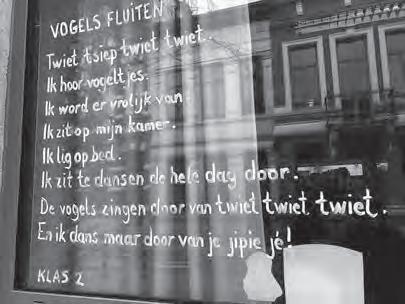 VOGELS FLUITEN
Twiet tsiep twiet twiet.
Ik hoor vogeltjes.
Ik word er vrolijk van.
Ik zit op mijn kamer.
Ik lig op bed.
Ik zit te dansen de hele dag door.
De vogels zingen door van twiet twiet twiet.
En ik dans maar door van je jipie jé!
KLAS 2